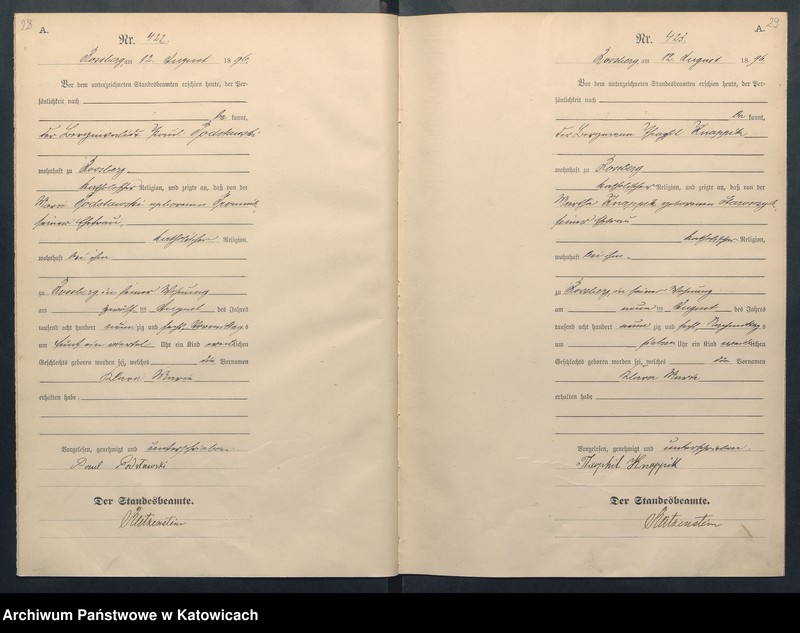 28
A.
Nr. 422.
Rossberg, am 12. August 1896.
Vor dem unterzeichneten Standesbeamten erschien heute, der Per-
sönlichkeit nach
be kannt,
der Paul Podstawski
wohnhaft zu Rossberg
katholischer Religion, und zeigte an, daß von der
Marie Podstawski geborenen
seiner Ehefrau,
katholischer Religion,
wohnhaft bei ihm
zu Rossberg in seiner Wohnung
am zwölften August des Jahres
tausend acht hundert neunzig und sechs Vormittags
um fünf ein viertel Uhr ein Kind weiblichen
Geschlechts geboren worden sei, welches die Vornamen
Klara Marie
erhalten habe.
Vorgelesen, genehmigt und unterschrieben.
Paul Podstawski
Der Standesbeamte.
Katzenstein
29
A.
Nr. 423.
Rossberg, am 12. August 1896.
Vor dem unterzeichneten Standesbeamten erschien heute, der Per-
sönlichkeit nach
be kannt,
der Bergmann Knappik
wohnhaft zu Rossberg
katholischer Religion, und zeigte an, daß von der
Martha Knappik geborenen
seiner Ehefrau
katholischer Religion,
wohnhaft bei ihm
zu Rossberg, in seiner Wohnung
am neunten August des Jahres
tausend acht hundert neunzig und sechs Nachmittags
um sieben Uhr ein Kind weiblichen
Geschlechts geboren worden sei, welches die Vornamen
Klara Maria
erhalten habe
Vorgelesen, genehmigt und unterschrieben.
Theophil Knappik
Der Standesbeamte.
Katzenstein
Archiwum Państwowe w Katowicach